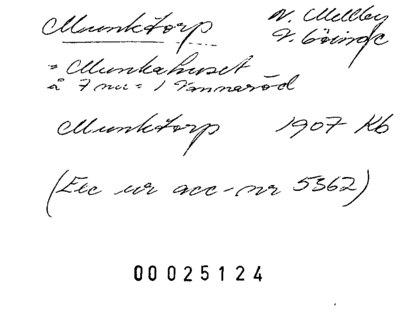 Munktorp N. Mellby
V. Göinge
= Munkahuset
å 7 nu = 1 Vannaröd
Munktorp 1907 Kb
(Exc ur acc-nr 5362)
00025124